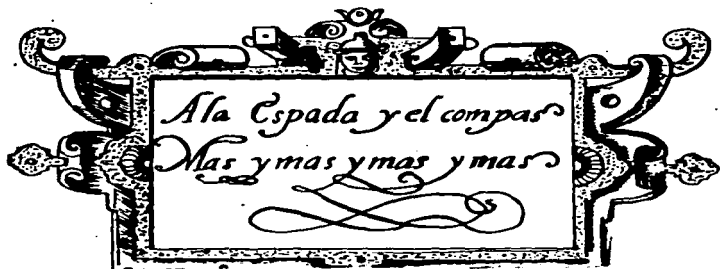 A la Espada y el compas
Mas y mas y mas y mas